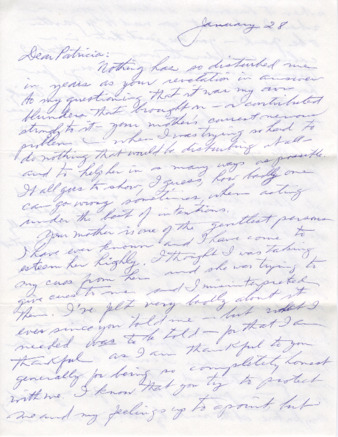 January 28
Dear Patricia:
Nothing has so disturbed me
in years as your revelation in answer
to my questioning that it was my own
blunders that brought on — or contributed
strongly to it — your mother's current nervous
problem — when I was trying so hard to
do nothing that would be disturbing at all
and to help her in as many ways as possible
It all goes to show, I guess, how badly one
can go wrong sometimes when acting
under the best of intentions.
Your mother is one of the gentlest persons
I have ever known and I have come to
esteem her highly. I thought I was taking
my cues from her and she was trying to
give cues to me and I misinterpreted
them. I've felt very badly about it
ever since you told me — but I
needed to be told — for that I am
thankful as I am thankful to you
generally for being so completely honest
with me. I know that you try to protect
me and my feelings up to a point but